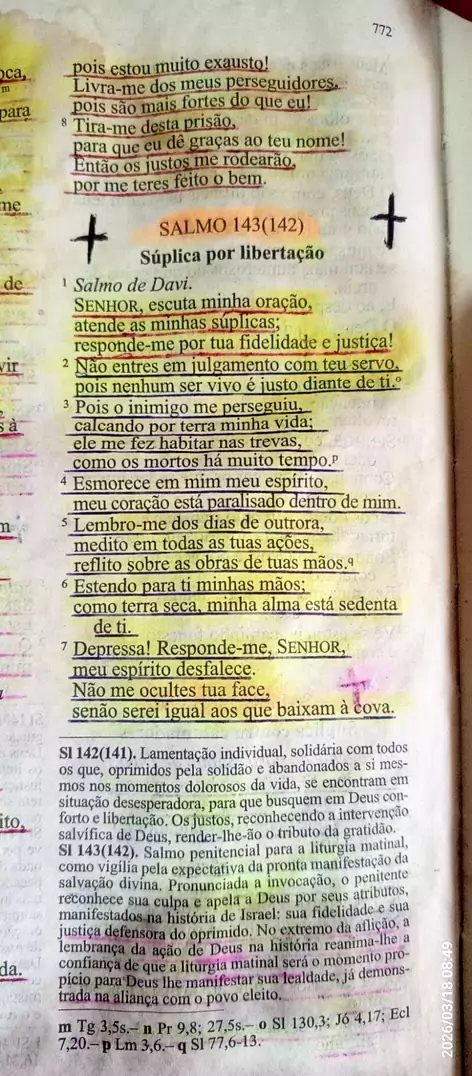 772
pois estou muito exausto!
Livra-me dos meus perseguidores,
pois são mais fortes do que eu!
8 Tira-me desta prisão,
para que eu dê graças ao teu nome!
Então os justos me rodearão,
por me teres feito o bem.
SALMO 143(142)
Súplica por libertação
1 Salmo de Davi.
SENHOR, escuta minha oração,
atende as minhas súplicas;
responde-me por tua fidelidade e justiça!
2 Não entres em julgamento com teu servo,
pois nenhum ser vivo é justo diante de ti.o
3 Pois o inimigo me perseguiu,
calcando por terra minha vida;
ele me fez habitar nas trevas,
como os mortos há muito tempo.p
4 Esmorece em mim meu espírito,
meu coração está paralisado dentro de mim.
5 Lembro-me dos dias de outrora,
medito em todas as tuas ações,
reflito sobre as obras de tuas mãos.q
6 Estendo para ti minhas mãos;
como terra seca, minha alma está sedenta
de ti.
7 Depressa! Responde-me, SENHOR,
meu espírito desfalece.
Não me ocultes tua face,
senão serei igual aos que baixam à cova.
Sl 142(141). Lamentação individual, solidária com todos
os que, oprimidos pela solidão e abandonados a si mes-
mos nos momentos dolorosos da vida, se encontram em
situação desesperadora, para que busquem em Deus con-
forto e libertação. Os justos, reconhecendo a intervenção
salvífica de Deus, render-lhe-ão o tributo da gratidão.
Sl 143(142). Salmo penitencial para a liturgia matinal,
como vigília pela expectativa da pronta manifestação da
salvação divina. Pronunciada a invocação, o penitente
reconhece sua culpa e apela a Deus por seus atributos,
manifestados na história de Israel: sua fidelidade e sua
justiça defensora do oprimido. No extremo da aflição, a
lembrança da ação de Deus na história reanima-lhe a
confiança de que a liturgia matinal será o momento pro-
pício para Deus lhe manifestar sua lealdade, já demons-
trada na aliança com o povo eleito.
m Tg 3,5s.– n Pr 9,8; 27,5s.– o Sl 130,3; Jó 4,17; Ecl
7,20.– p Lm 3,6.– q Sl 77,6-13.
2026/03/18 08:49